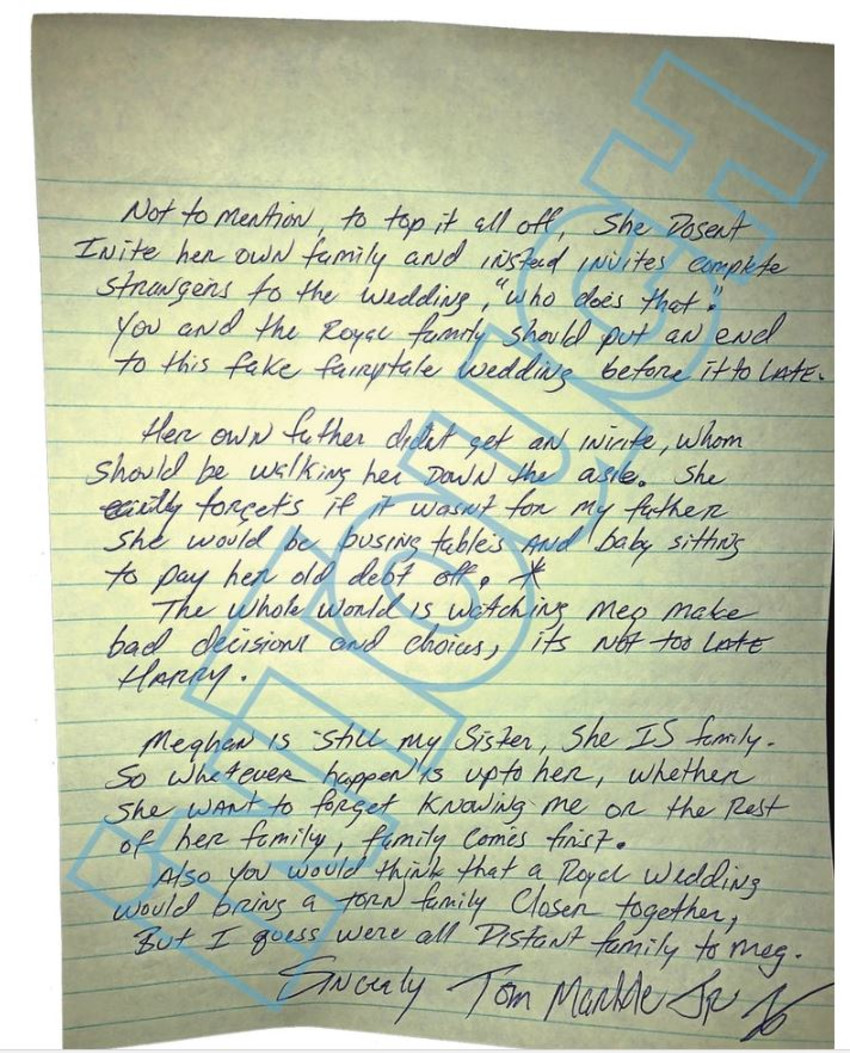 Not to mention, to top it all off, She Dosent
Inite her own family and instead invites complete
strangers to the wedding, "who does that".
You and the Royal family should put an end
to this fake fairytale wedding before it to LATE.
Her own father didnt get an inivite, whom
should be walking her DOWN the asile. She
forgets if it wasnt for my father
She would be busing tables AND baby sitting
to pay her old debt off. *
The whole world is watching Meg make
bad decisions and choices, its NOT too LATE
HARRY.
Meghan is still my Sister, She IS family.
So whatever happen is upto her, whether
she WANT to forget Knowing me or the Rest
of her family, family comes first.
Also you would think that a Royal wedding
would bring a TORN family Closer together,
But I guess were all Distant family to Meg.
Sincerly Tom Markle Jr
inTouch